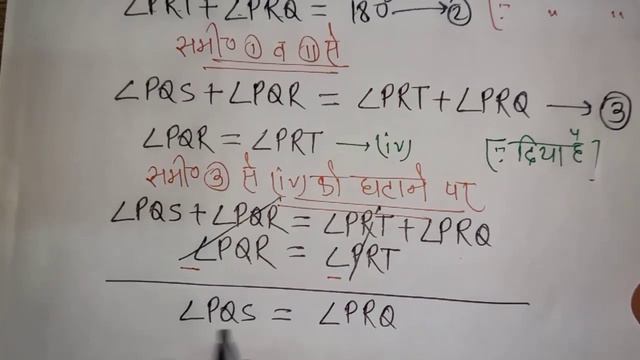 ∠PRT + ∠PRQ = 180° → ② [∵ " "
समी० ① व ⑪ से
∠PQS + ∠PQR = ∠PRT + ∠PRQ → ③
∠PQR = ∠PRT → (iv) [∵ दिया है]
समी० ③ से (iv) को घटाने पर
∠PQS + ∠PQR = ∠PRT + ∠PRQ
∠PQR = ∠PRT
∠PQS = ∠PRQ